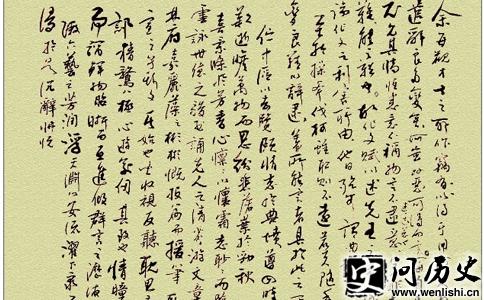 余每觀才士之所作竊有以得其用
遣辭良多變矣妍蚩好惡可得而言
尤見其情恒患意不稱物文不逮意
難能之難也故作文賦以述先士
論作文之利害所由他日殆可謂曲
至於操斧伐柯雖取則不遠若夫隨手
變良難以辭逮蓋所能言者具於此云
佇中區以玄覽頤情志於典墳遵四時
歎逝瞻萬物而思紛悲落葉於勁秋
喜柔條於芳春心懍懍以懷霜志眇眇而臨
雲詠世德之駿烈誦先人之清芬遊文章
林府嘉麗藻之彬彬慨投篇而援筆
宣之乎斯文其始也皆收視反聽耽思
訊精騖極心遊萬仞其致也情曈
而彌鮮物昭晰而互進傾群言之瀝液
漱六藝之芳潤浮天淵以安流濯下泉
浸於是沉辭怫悅
史问历史
www.wenlishi.cn